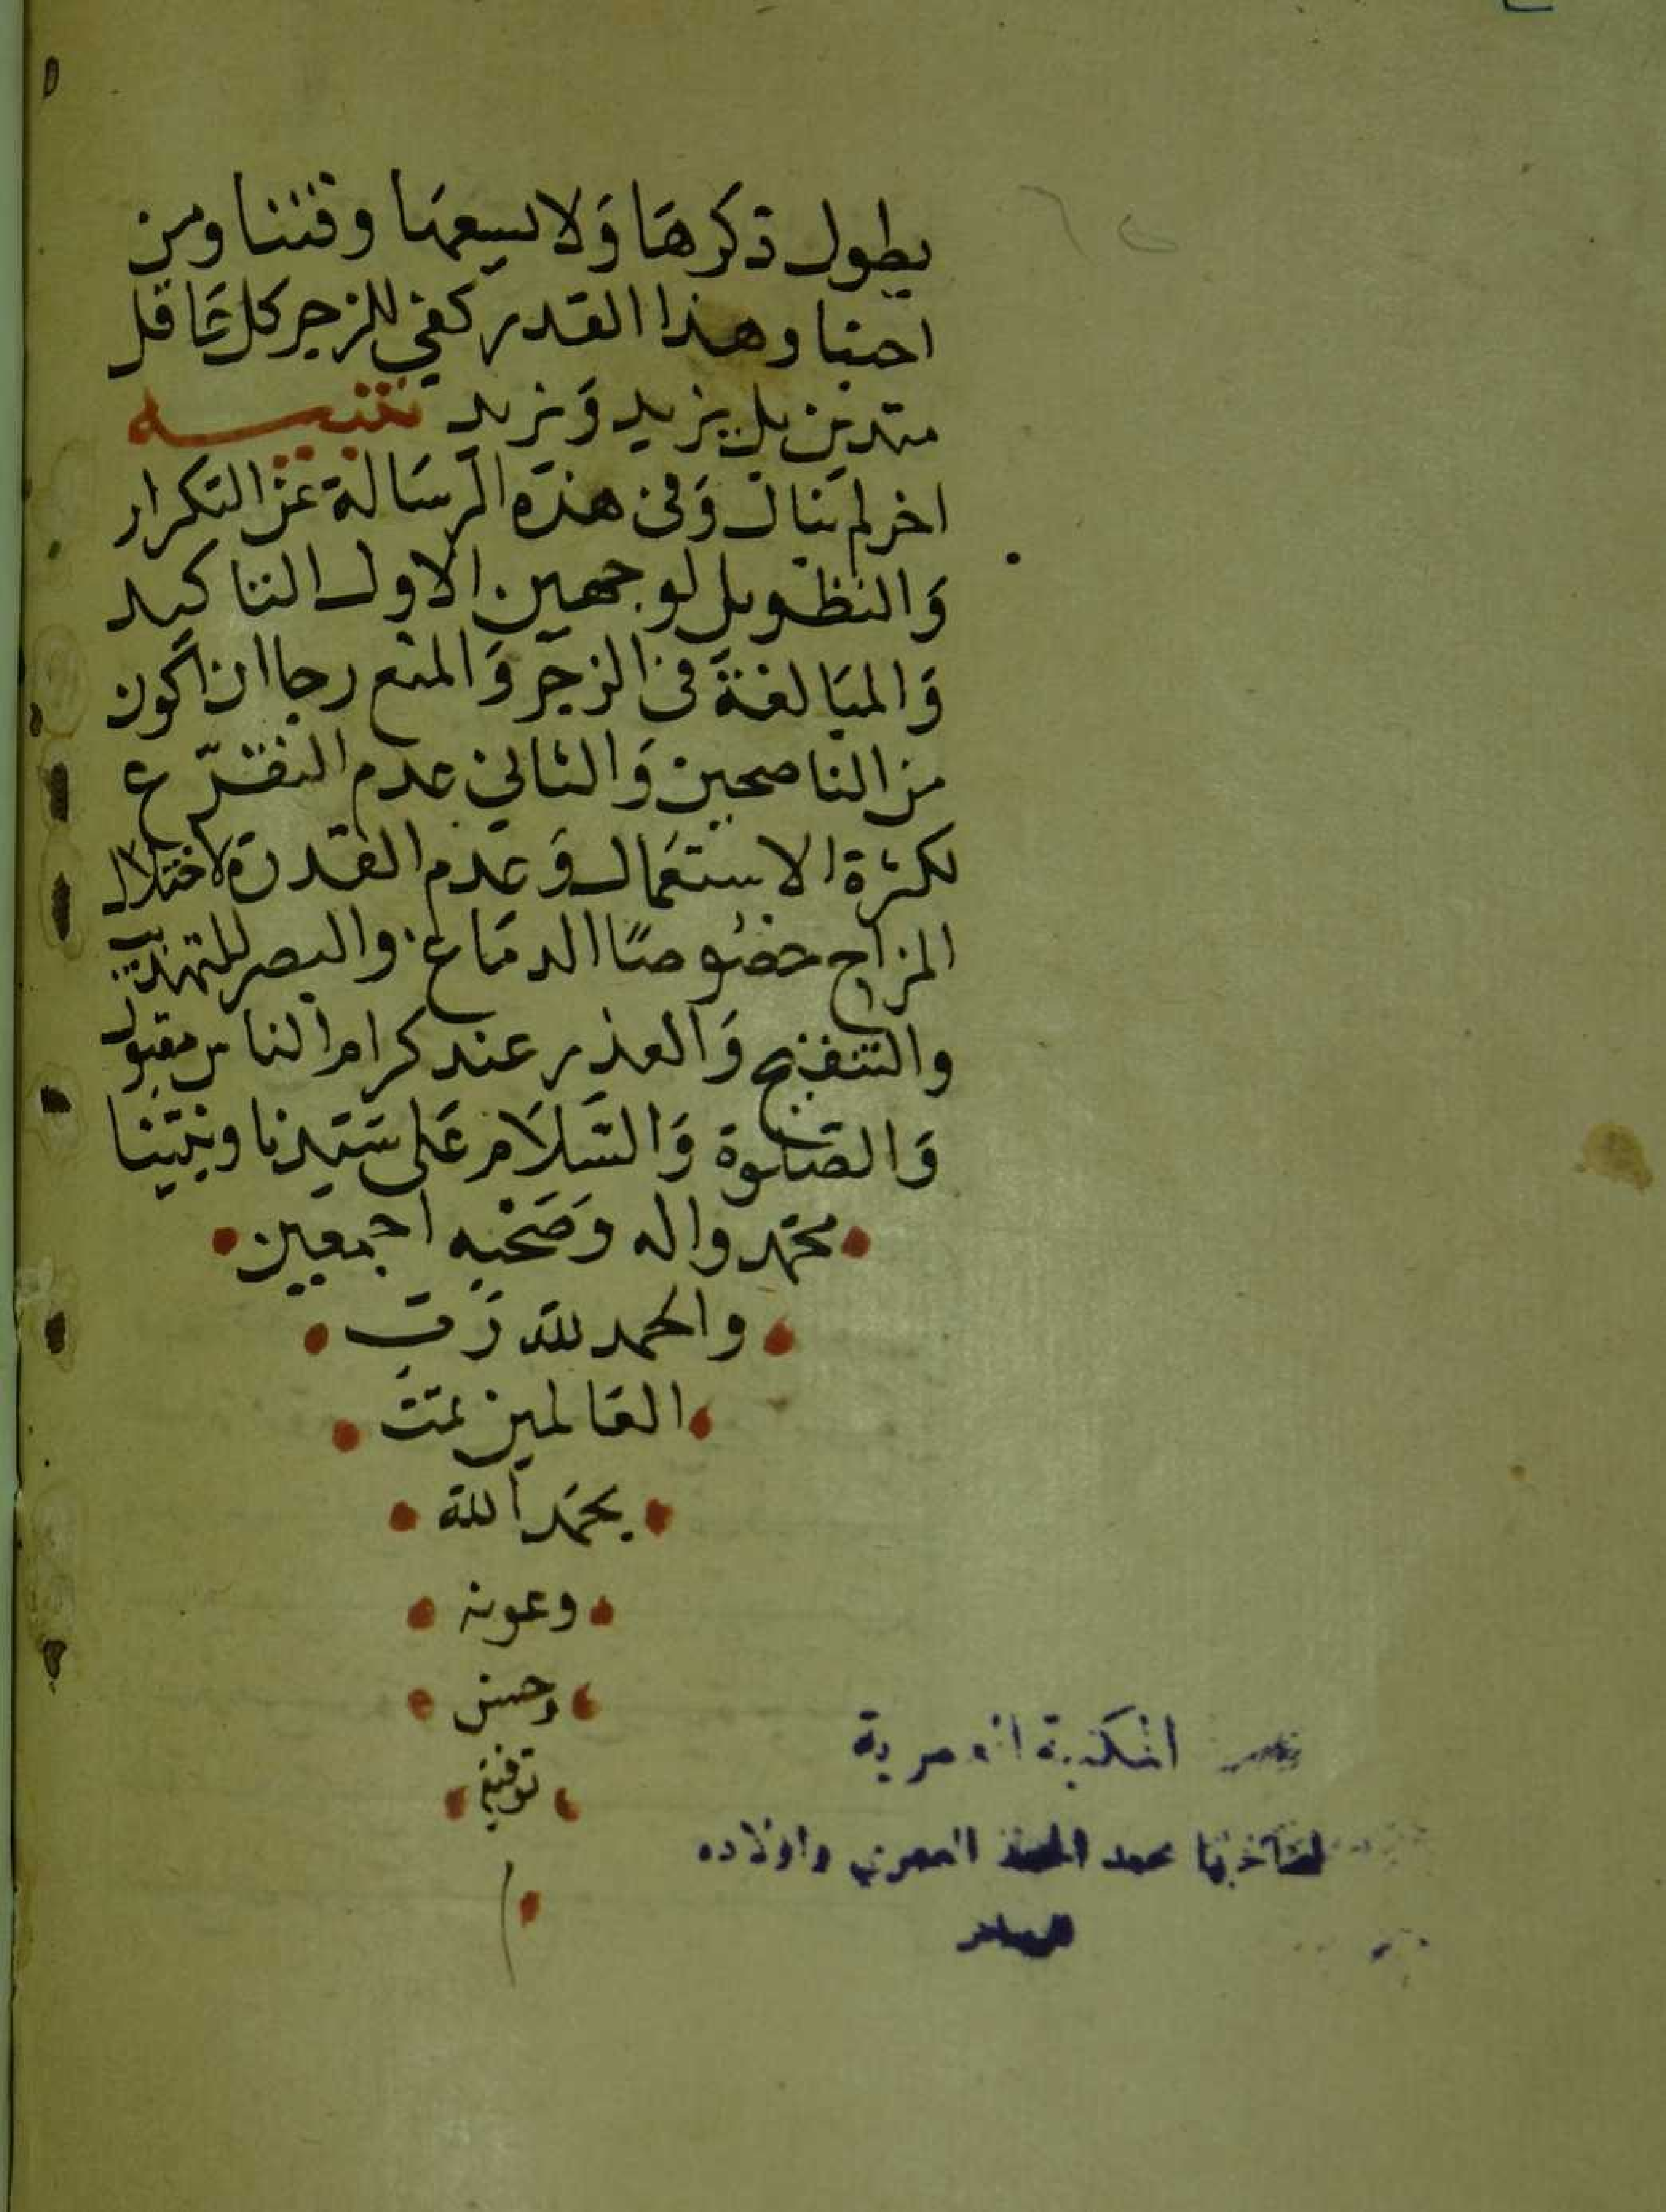 يطول ذكرها ولا يسعها وقتنا ومن
احبنا وهذا القدر كفي للزجر كل عاقل
متدين بل يزيد ويزيد تنبيه
اخر لم نبال وفي هذه الرسالة عن التكرار
والتطويل لوجهين الاول التاكيد
والمبالغة في الزجر والمنع رجا ان اكون
من الناصحين والثاني عدم التفرغ
لكثرة الاستعمال وعدم القدرة لاختلال
المزاج خصوصا الدماغ والبصر للتهذيب
والتنقيح والعذر عند كرام الناس مقبول
والصلوة والسلام على سيدنا ونبينا
محمد واله وصحبه اجمعين
والحمد لله رب
العالمين تمت
بحمد الله
وعونه
وحسن
توفيقه
المكتبة العمرية
لصاحبها محمد العمري واولاده